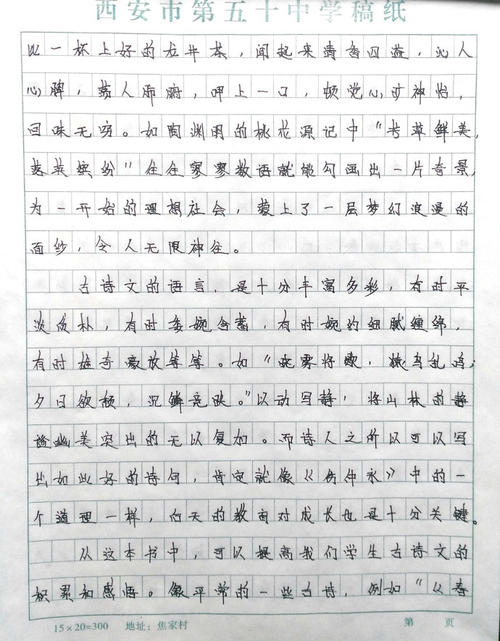 西安市第五十中学稿纸
以一杯上好的龙井茶，闻起来清香四溢，沁人
心脾，引人而醉，呷上一口，顿觉心旷神怡，
回味无穷。如陶渊明的桃花源记中“芳草鲜美，
落英缤纷”往往寥寥数语就能勾画出一片奇景，
为一开始的理想社会，蒙上了一层梦幻浪漫的
面纱，令人无限神往。
古诗文的语言，是十分丰富多彩，有时平
淡质朴，有时委婉含蓄，有时婉约细腻缠绵，
有时雄奇豪放等等。如“晓雾将歇，猿鸟乱鸣；
夕日欲颓，沉鳞竞跃。”以动写静，将山林的静
谧幽美突出的无以复加。而诗人之所以可以写
出如此好的诗句，肯定就像《伤仲永》中的一
个道理一样，后天的教育对成长也是十分关键。
从这本书中，可以提高我们学生古诗文的
积累和感悟。像平常的一些古诗，例如“《春
15×20=300 地址：焦家村 第 页